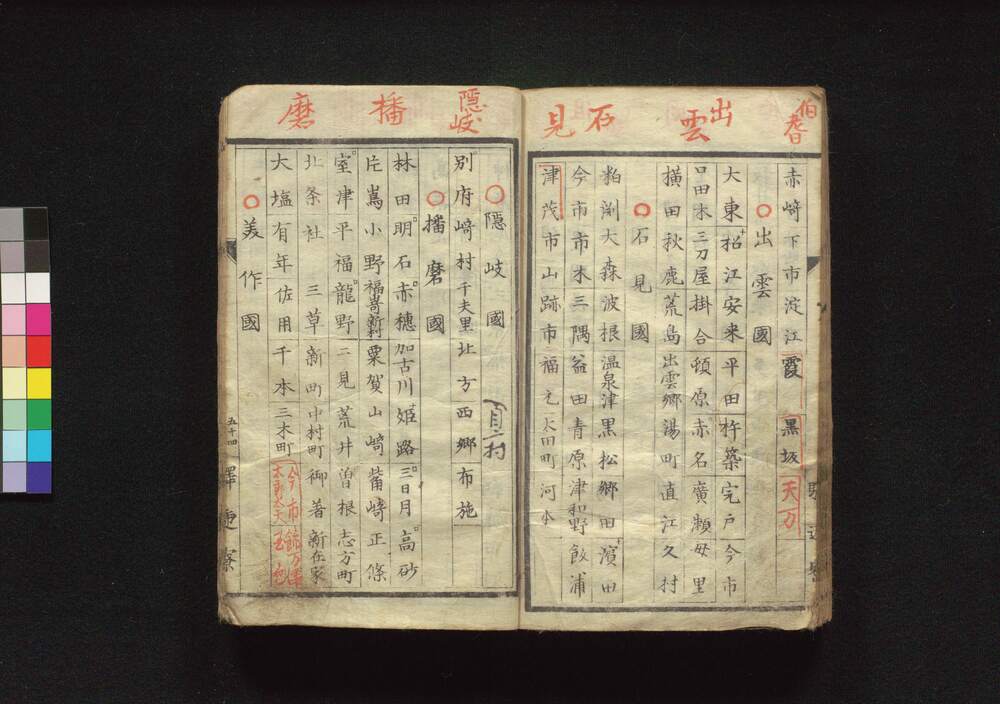 伯耆
出雲
石見
赤﨑下市淀江霞黒坂天万
○出雲國
大東松江安来平田杵築宍戸今市
口田木三刀屋掛合頓原赤名廣瀬母里
横田秋鹿荒島出雲郷湯町直江久村
○石見國
粕渕大森波根温泉津黒松郷田濱田
今市市木三隅益田青原津和野飯浦
津茂市山跡市福光太田町河本
隠岐
播磨
○隠岐國
別府﨑村千夫里北方西郷布施
○播磨國
林田明石赤穗加古川姫路三日月高砂
片嶌小野福嵜新村粟賀山﨑觜﨑正條
室津平福龍野二見荒井曽根志方町
北条社三草新町中村町御着新在家
大塩有年佐用千本三木町今市
○美作國
五十四
驛逓寮